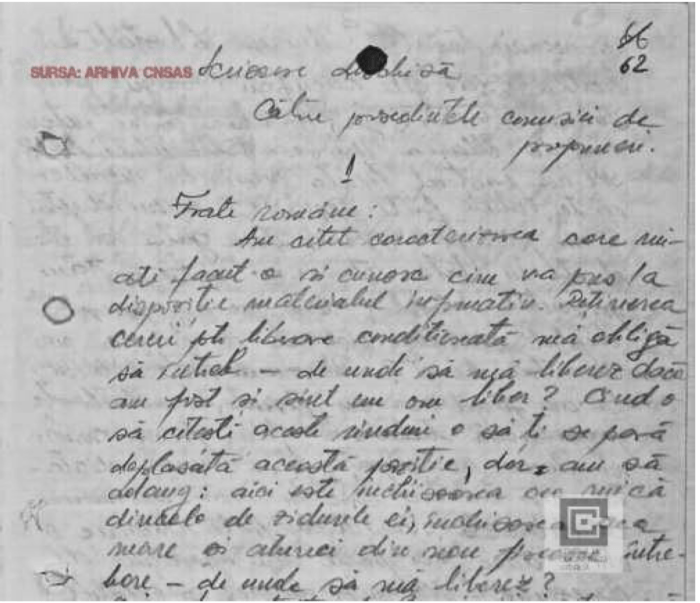 66
62
SURSA: ARHIVA CNSAS Scrisoare deschisă
Către, președintele comisiei de
propuneri.
1
Frate române:
Am citit caracterizarea care mi-
ați facut-o si cunosc cine va pus la
dispozitie materialul informativ. Retinerea
cererii ptr liberare conditionată mă obligă
să intreb – de unde să mă liberez dacă
am fost si sint un om liber? Cind o
să citesti aceste rinduri o să ti se pară
deplasată această poziție, dar, am să
adaug: aici este inchisoarea cea mică
dincolo de zidurile ei, inchisoarea cea
mare si atunci din nou intre-
bare – de unde să mă liberez?